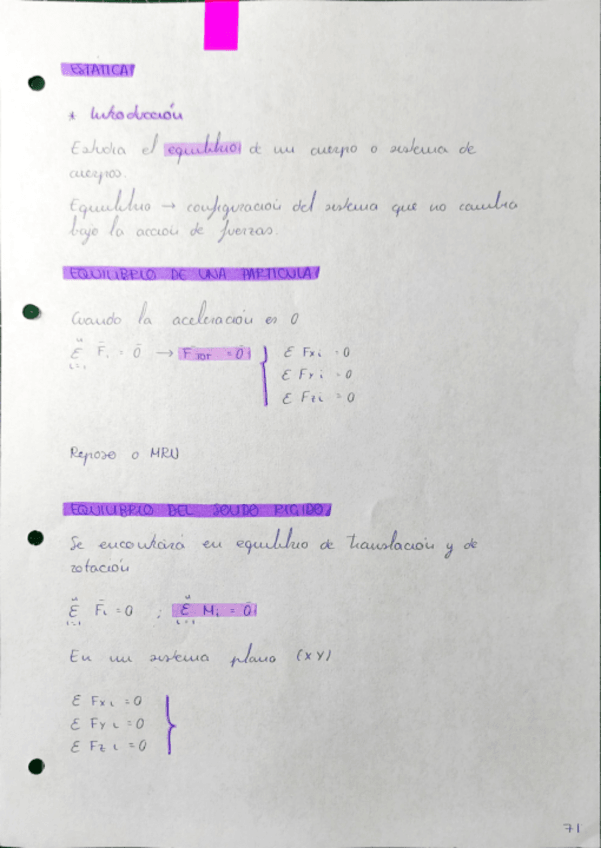 ESTÁTICA
* Introducción
Estudia el equilibrio de un cuerpo o sistema de
cuerpos.
Equilibrio → configuración del sistema que no cambia
bajo la acción de fuerzas.
EQUILIBRIO DE UNA PARTÍCULA
Cuando la aceleración es 0
n Σ i=1 F̄i = 0̄ → F̄TOT = 0̄ } Σ Fxi = 0
Σ Fyi = 0
Σ Fzi = 0
Reposo o MRU
EQUILIBRIO DEL SÓLIDO RÍGIDO
Se encontrará en equilibrio de translación y de
rotación
n Σ i=1 F̄i = 0 ; n Σ i=1 M̄i = 0̄
En un sistema plano (XY)
Σ Fxi = 0
Σ Fyi = 0
Σ Fzi = 0 }
71